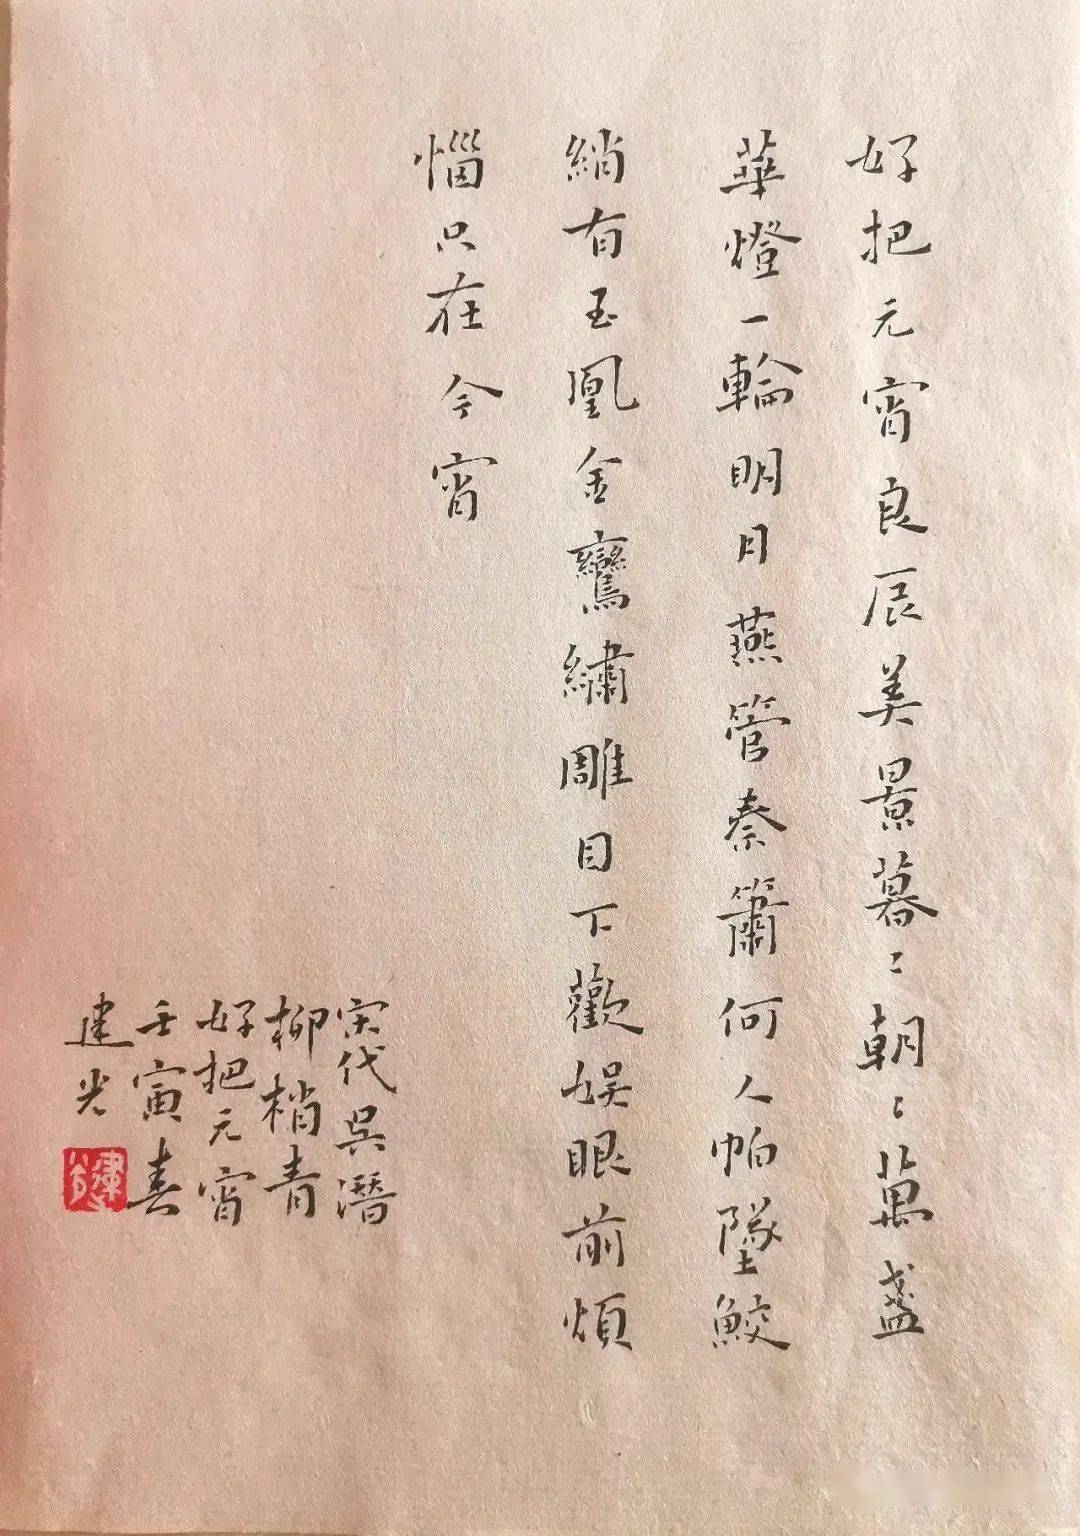 好把元宵良辰美景暮〻朝〻萬盞
華燈一輪明月燕管秦簫何人帕墜鮫
綃有玉鳳金鸞繡雕目下歡娛眼前煩
惱只在今宵
宋代吳潛
柳梢青
好把元宵
壬寅春
建光